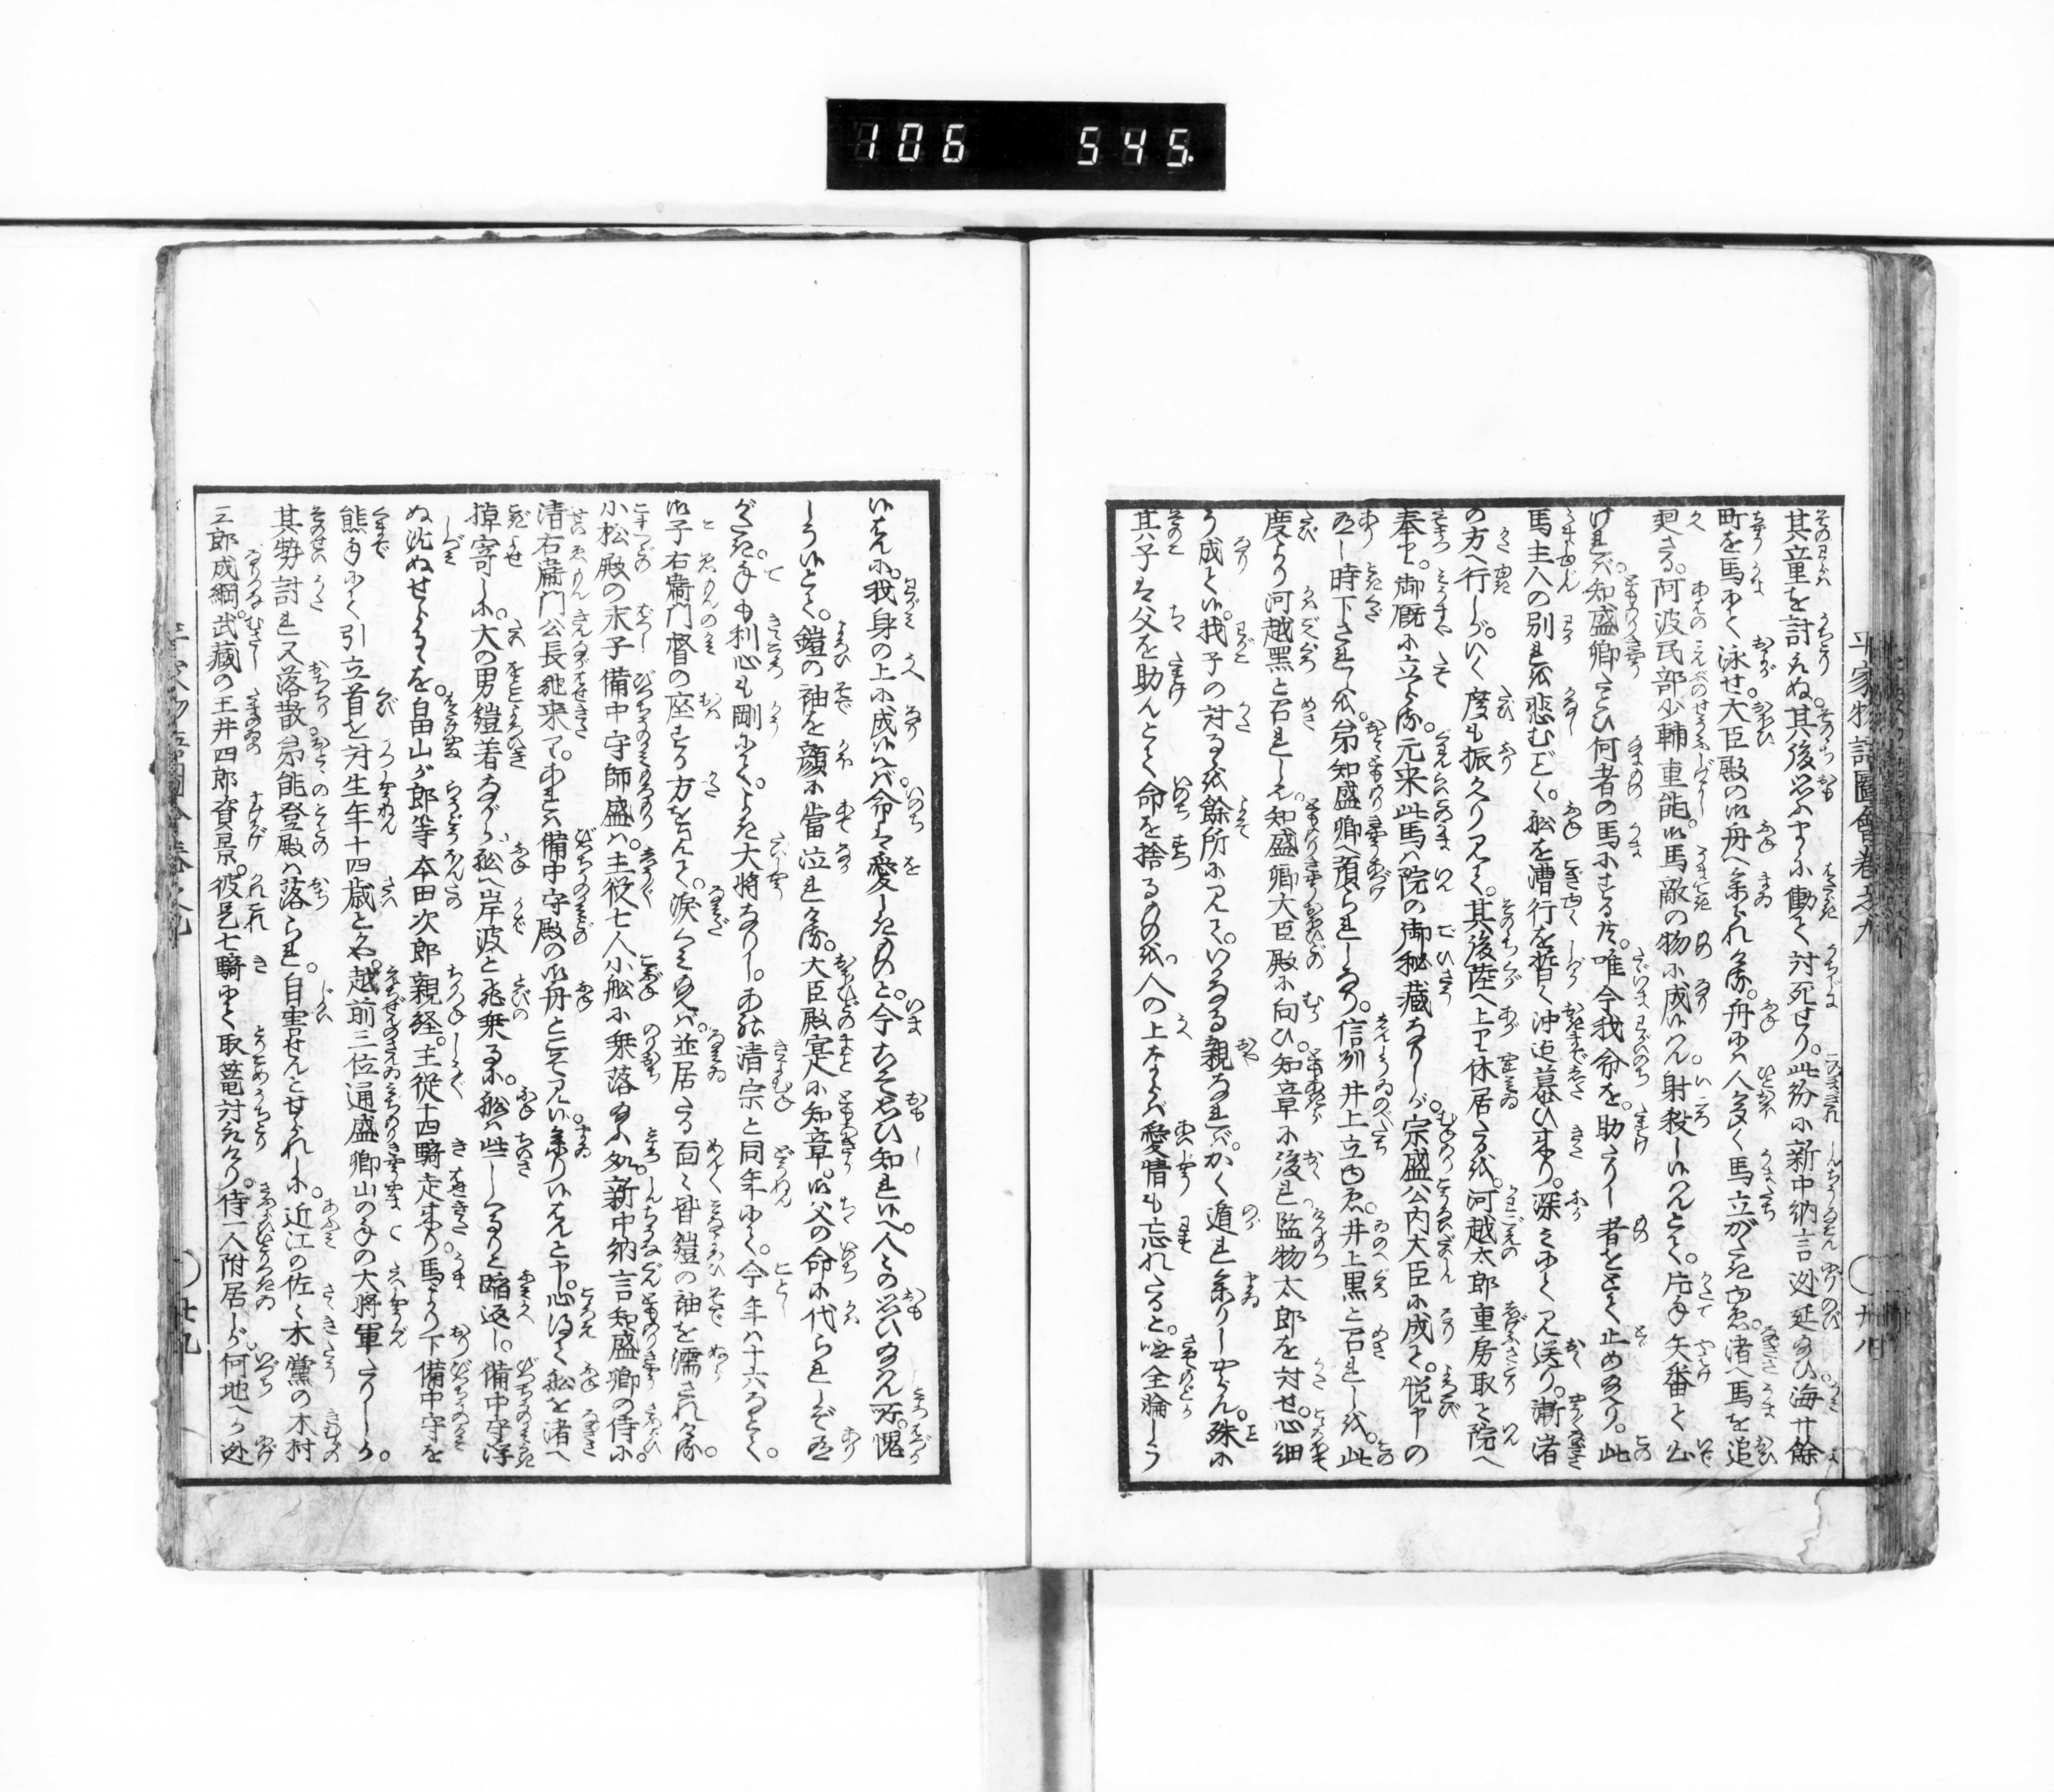 106 545.
平家物語圖會卷之九
其童を討取ぬ。其後思ふまゝに働て討死せり。此紛に新中納言迯延給ひ海廿餘
町を馬にて泳せ。大臣殿の御舟へ參られける。舟にハ人多く馬立がたき故。渚へ馬を追
廻さる。阿波民部少輔重能。御馬敵の物に成候ハん。射殺し候ハんとて。片手矢番て出
ければ。知盛卿たとひ何者の馬にする共。唯今我命を。助たりし者をとて止め給へり。此
馬主人の別れを悲むごとく。舩を漕行を暫く沖迄慕ひ來り。深みにて見送り。漸渚
の方へ行しが。いく度も振返り見て。其後陸へ上り休居たるを。河越太郎重房取て院へ
奉り。御厩に立らる。元来此馬ハ院の御秘蔵なりしが。宗盛公内大臣に成て。悦申の
有し時下されしを。弟知盛卿へ預られしなり。信州井上立ゆゑ。井上黒と召れしを。此
度より河越黒と召れしとぞ。知盛卿大臣殿に向ひ。知章に後れ監物太郎を討せ。心細
う成て候。我子の討るゝを餘所に見て。いかなる親なれバ。かく遁れ參りしやらん。殊に
其子は父を助んとて命を捨るものを。人の上ならバ愛情も忘れたると。嘸全論しう
候はんに。我身の上に成候へバ命は愛しきものと。今こそ思ひ知れ候へ。人々の思ひ給ん所。愧
しう候とて。鎧の袖を顔に當泣れける。大臣殿寔に知章。御父の命に代られしぞ有
がたき。手も利心も剛にて。よき大将なりし。あれ清宗と同年にて。今年ハ十六なるとて。
御子右衞門督の座する方を見て。涙ぐミ給へば。並居たる面々皆鎧の袖を濡されける。
小松殿の末子備中守師盛ハ。主従七人小舩に乗落給ふ処。新中納言知盛卿の侍に。
清右衞門公長馳来り。あれハ備中守殿の御舟とこそ見候。參り候はんと申。心得て舩を渚へ
掉寄しに。大の男鎧着ながら舩へ岸波と飛乗るに。舩ハ些しくるりと踏返し。備中守浮
ぬ沈ぬせらるゝを。畠山が郎等本田次郎親経。主従十四騎走來り馬より下備中守を
熊手にて引立首を討。生年十四歳とかや。越前三位通盛卿山の手の大将軍たりしが。
其勢討れ又落散。弟能登殿ハ落られ。自害せんとせられしに。近江の佐々木黨の木村
三郎成綱。武藏の玉井四郎資景。彼是七騎にて取篭討取けり。侍一人附居しが。何地へか迯